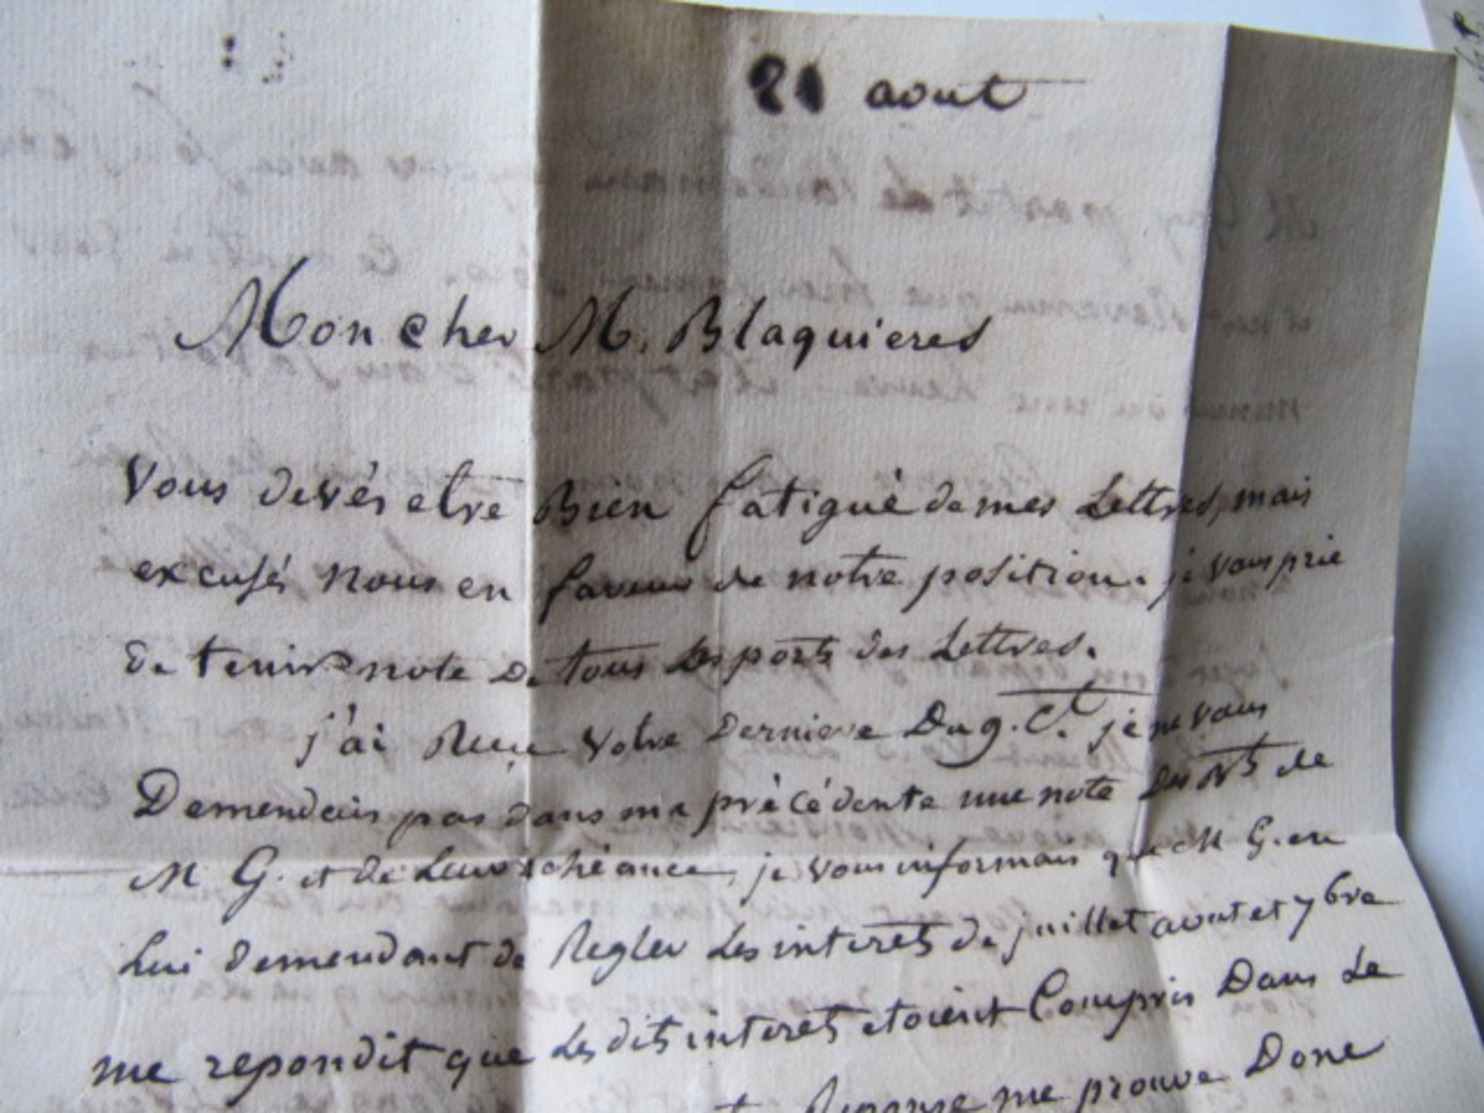 21 aout
Mon cher M. Blaquieres
Vous devés etre Bien fatigué de mes Lettres, mais
excusés nous en faveur de notre position. je vous prie
de tenir note De tous les ports des Lettres.
j'ai Reçue Votre Derniere Du 9. Ct. je ne vous
Demendais pas dans ma précédente une note Des Bts de
M G. et de Leur echéance, je vous informais que M G. en
Lui demendant de Regler Les interets de juillet aout et 7bre
me repondit que Les dits interets etoient Compris Dans Le
Reponse me prouve Donc